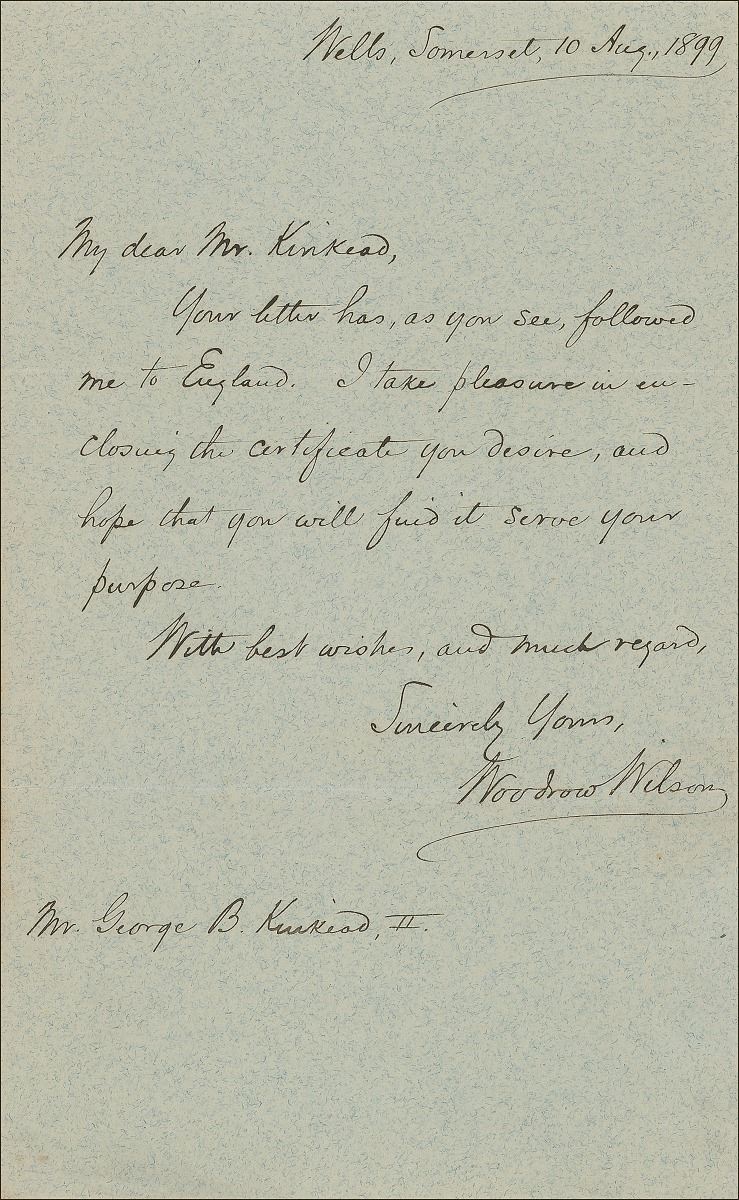 Wells, Somerset, 10 Aug., 1899
My dear Mr. Kinkead,
Your letter has, as you see, followed
me to England. I take pleasure in en-
closing the certificate you desire, and
hope that you will find it serve your
purpose.
With best wishes, and much regard,
Sincerely Yours,
Woodrow Wilson
Mr. George B. Kinkead, II.